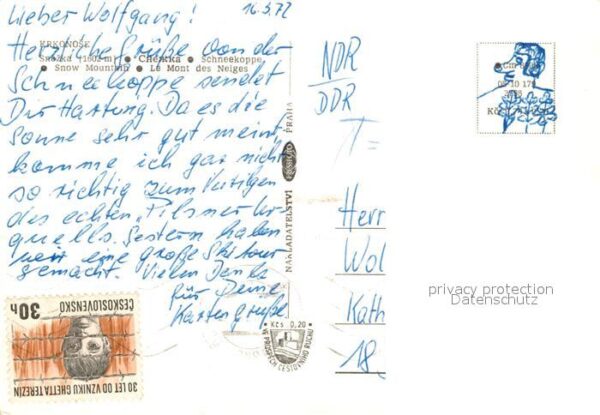 Lieber Wolfgang! 16.3.72
KRKONOŠE
Sněžka (1602 m) • Chenkka • Schneekoppe
• Snow Mountain • Le Mont des Neiges
Herzliche Grüße von der
Schneekoppe sendet
Dir Hartung. Da es die
Sonne sehr gut meint,
komme ich gar nicht
so richtig zum Vertilgen
des echten „Pilsner Ur-
quells. Gestern haben
wir eine große Skitour
gemacht. Vielen Dank
für Deine
Kartengrüße
NAKLADATELSTVÍ PRAHA
Kčs 0,20
VE PROSPĚCH CESTOVNÍHO RUCHU
NDR
DDR
Herr
Wol
Kath
18
Kčs
privacy protection
Datenschutz
30 LET OD VZNIKU GHETTA TEREZÍN
ČESKOSLOVENSKO
30h